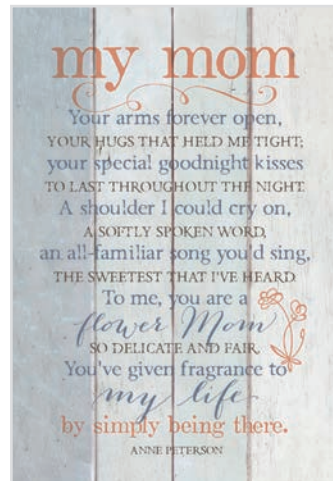 my mom
Your arms forever open,
YOUR HUGS THAT HELD ME TIGHT;
your special goodnight kisses
TO LAST THROUGHOUT THE NIGHT.
A shoulder I could cry on,
A SOFTLY SPOKEN WORD,
an all-familiar song you'd sing,
THE SWEETEST THAT I'VE HEARD.
To me, you are a
flower Mom
SO DELICATE AND FAIR,
You've given fragrance to
my life
by simply being there.
ANNE PETERSON